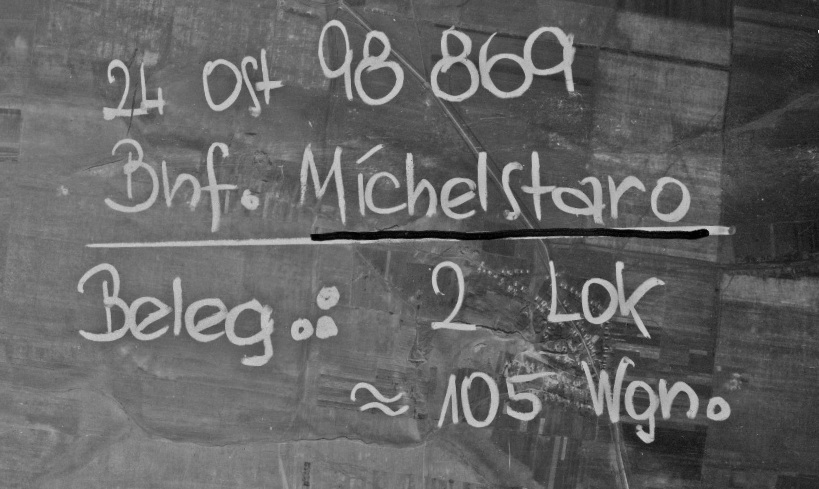 24 Ost 98 869
Bhf. Michelstaro
Beleg.: 2 Lok
≈ 105 Wgn.